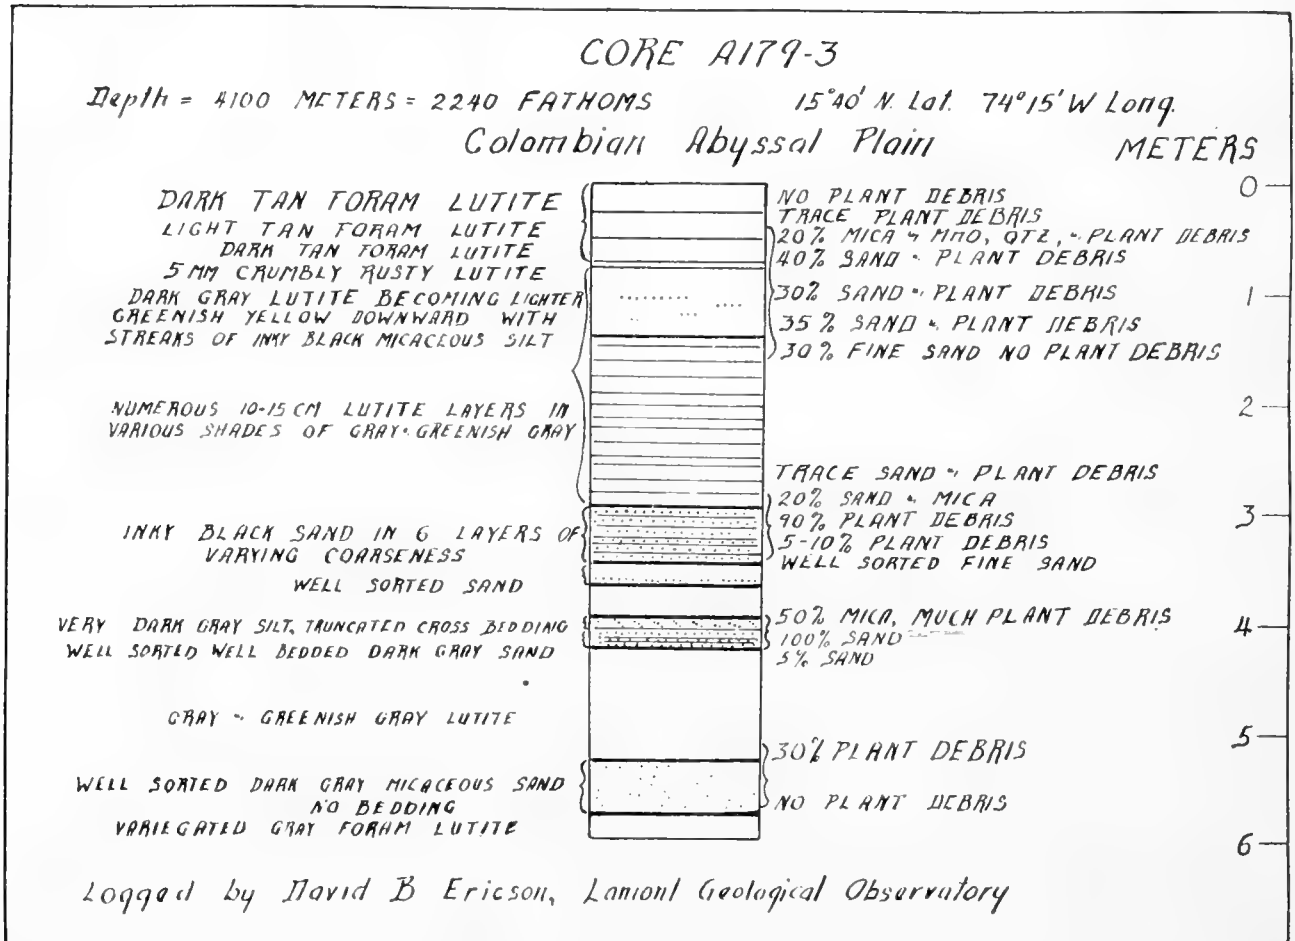 CORE A179-3
Depth = 4100 METERS = 2240 FATHOMS 15°40' N. Lat. 74°15' W Long.
Colombian Abyssal Plain METERS
DARK TAN FORAM LUTITE
LIGHT TAN FORAM LUTITE
DARK TAN FORAM LUTITE
5 MM CRUMBLY RUSTY LUTITE
DARK GRAY LUTITE BECOMING LIGHTER
GREENISH YELLOW DOWNWARD WITH
STREAKS OF INKY BLACK MICACEOUS SILT
NUMEROUS 10-15 CM LUTITE LAYERS IN
VARIOUS SHADES OF GRAY & GREENISH GRAY
INKY BLACK SAND IN 6 LAYERS OF
VARYING COARSENESS
WELL SORTED SAND
VERY DARK GRAY SILT, TRUNCATED CROSS BEDDING
WELL SORTED WELL BEDDED DARK GRAY SAND
GRAY & GREENISH GRAY LUTITE
WELL SORTED DARK GRAY MICACEOUS SAND
NO BEDDING
VARIEGATED GRAY FORAM LUTITE
NO PLANT DEBRIS
TRACE PLANT DEBRIS
20% MICA & MNO, QTZ, & PLANT DEBRIS
40% SAND & PLANT DEBRIS
30% SAND & PLANT DEBRIS
35% SAND & PLANT DEBRIS
30% FINE SAND NO PLANT DEBRIS
TRACE SAND & PLANT DEBRIS
20% SAND & MICA
90% PLANT DEBRIS
5-10% PLANT DEBRIS
WELL SORTED FINE SAND
50% MICA, MUCH PLANT DEBRIS
100% SAND
5% SAND
30% PLANT DEBRIS
NO PLANT DEBRIS
0
1
2
3
4
5
6
Logged by David B Ericson, Lamont Geological Observatory